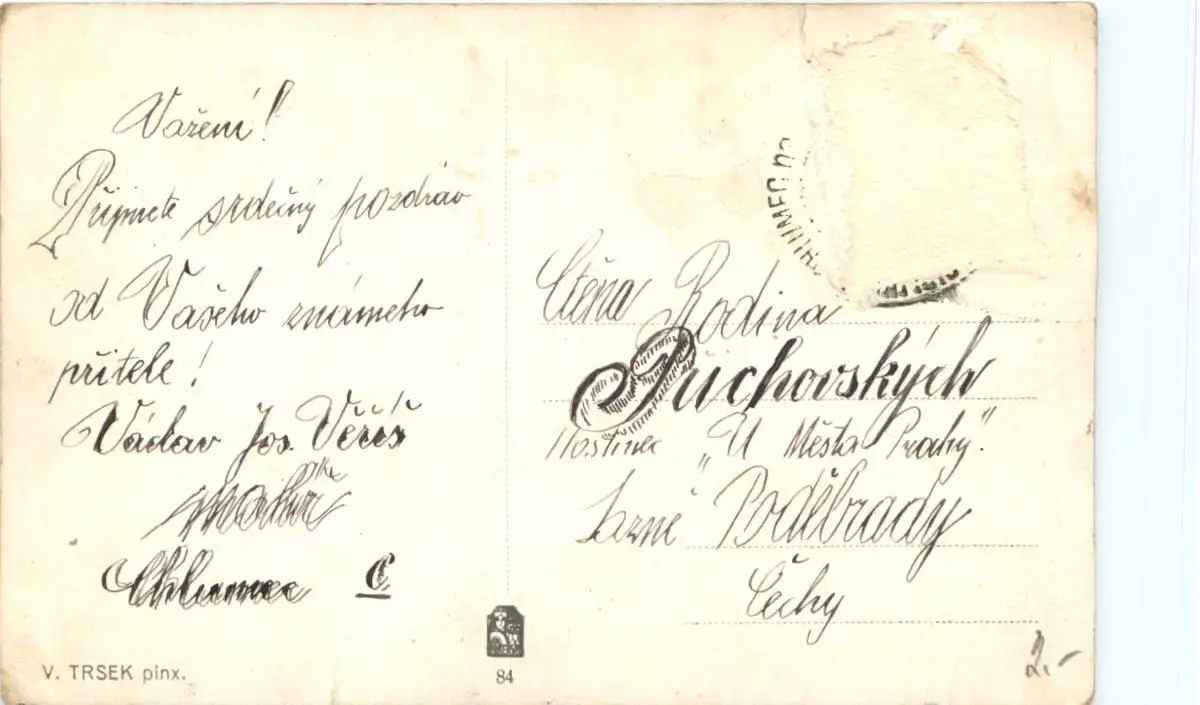 Vážení!
Přijmete srdečný pozdrav
od Vašeho známeho
přítele!
Václav Jos. Věříš
malíř
Chlumec C
V. TRSEK pinx.
84
Ctěná Rodina
Suchovských
Hostinec „U Města Prahy".
Lázně Poděbrady
Čechy
2.-